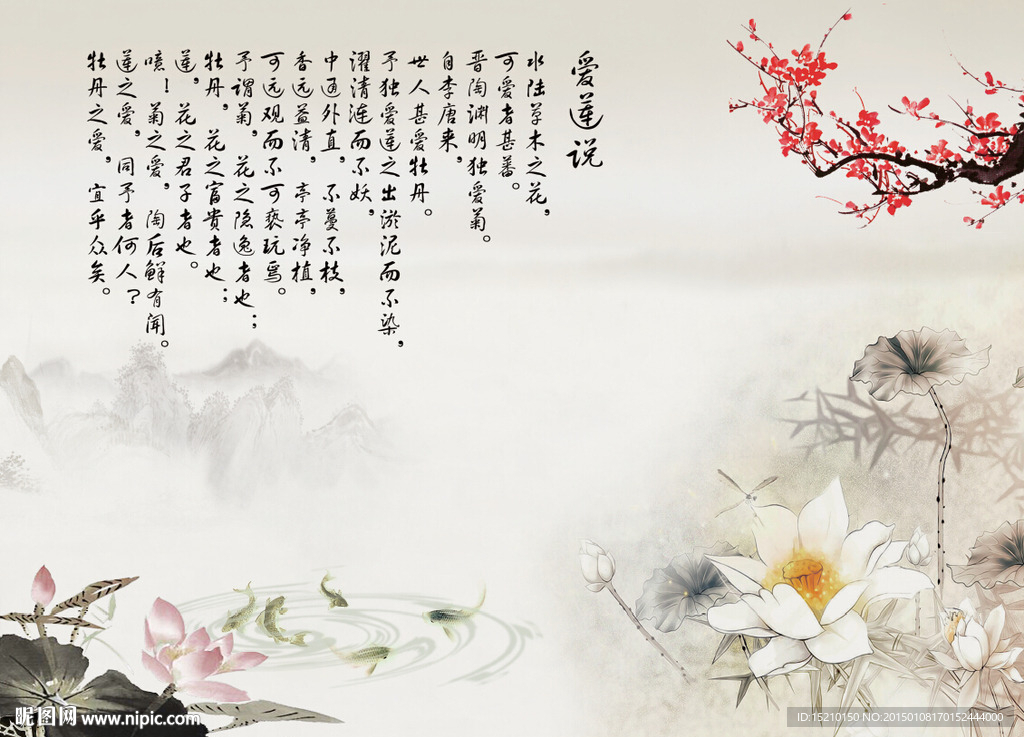 爱莲说
水陆草木之花，
可爱者甚蕃。
晋陶渊明独爱菊。
自李唐来，
世人甚爱牡丹。
予独爱莲之出淤泥而不染，
濯清涟而不妖，
中通外直，不蔓不枝，
香远益清，亭亭净植，
可远观而不可亵玩焉。
予谓菊，花之隐逸者也；
牡丹，花之富贵者也；
莲，花之君子者也。
噫！菊之爱，陶后鲜有闻。
莲之爱，同予者何人？
牡丹之爱，宜乎众矣。
昵图网 www.nipic.com
ID:15210150 NO:20150108170152444000